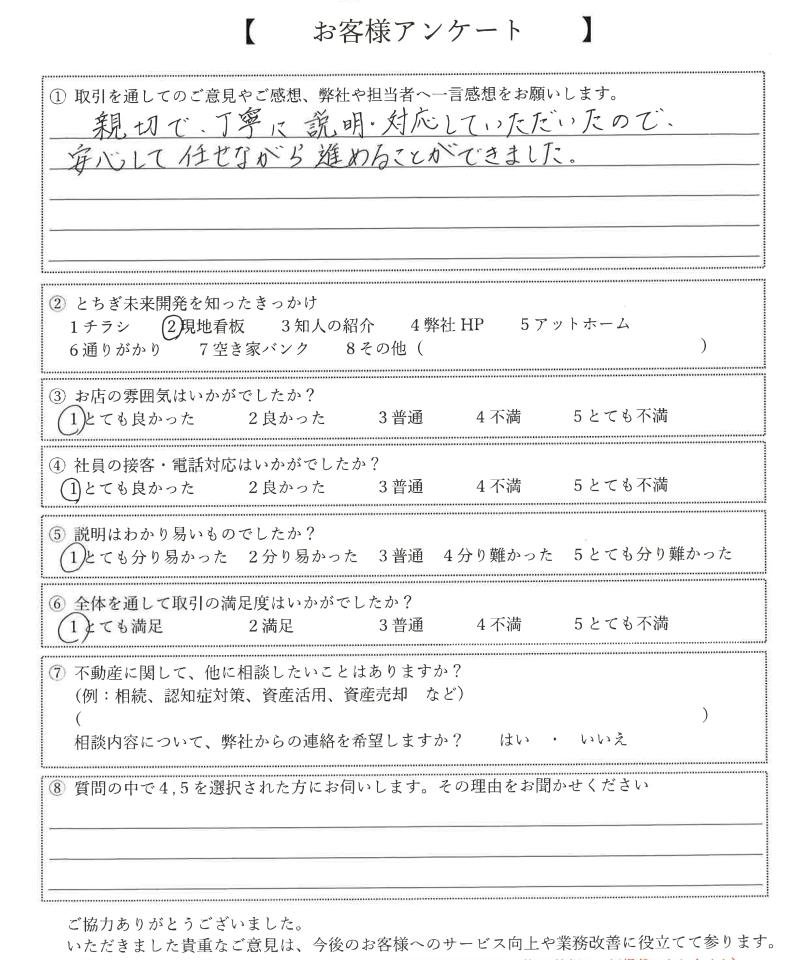 【 お客様アンケート 】
① 取引を通してのご意見やご感想、弊社や担当者へ一言感想をお願いします。
親切で、丁寧に説明・対応していただいたので、
安心して任せながら進めることができました。
② とちぎ未来開発を知ったきっかけ
1チラシ 2現地看板 3知人の紹介 4弊社HP 5アットホーム
6通りがかり 7空き家バンク 8その他( )
③ お店の雰囲気はいかがでしたか？
1とても良かった 2良かった 3普通 4不満 5とても不満
④ 社員の接客・電話対応はいかがでしたか？
1とても良かった 2良かった 3普通 4不満 5とても不満
⑤ 説明はわかり易いものでしたか？
1とても分り易かった 2分り易かった 3普通 4分り難かった 5とても分り難かった
⑥ 全体を通して取引の満足度はいかがでしたか？
1とても満足 2満足 3普通 4不満 5とても不満
⑦ 不動産に関して、他に相談したいことはありますか？
（例：相続、認知症対策、資産活用、資産売却 など）
( )
相談内容について、弊社からの連絡を希望しますか？ はい ・ いいえ
⑧ 質問の中で4,5を選択された方にお伺いします。その理由をお聞かせください
ご協力ありがとうございました。
いただきました貴重なご意見は、今後のお客様へのサービス向上や業務改善に役立てて参ります。